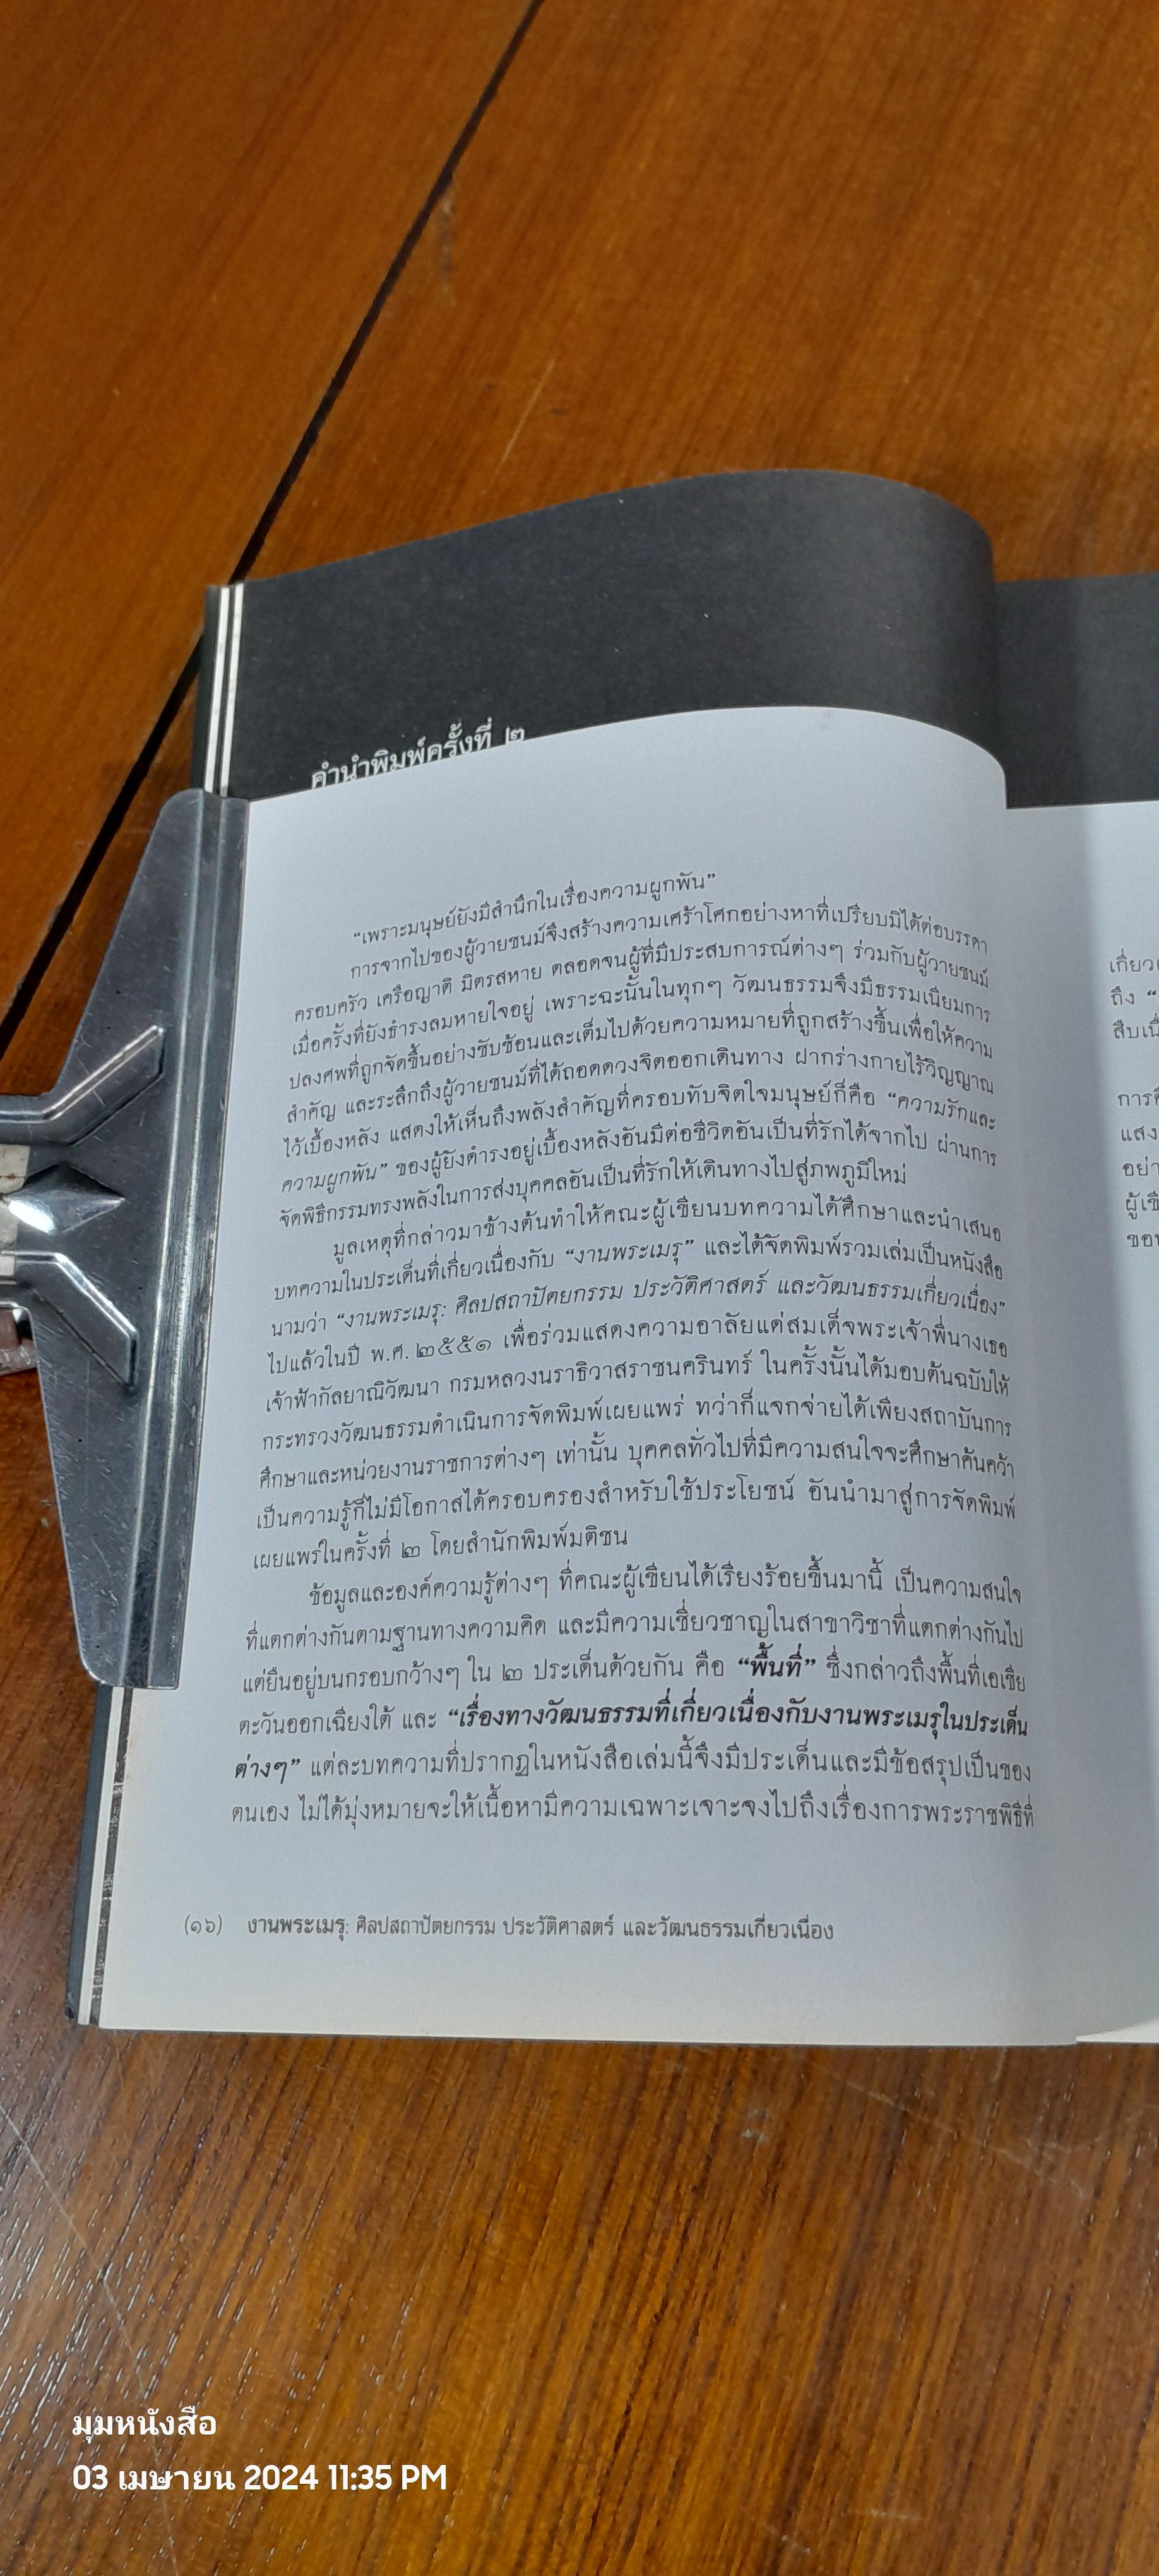 คำนำพิมพ์ครั้งที่ ๒
“เพราะมนุษย์ยังมีสำนึกในเรื่องความผูกพัน”
การจากไปของผู้วายชนม์จึงสร้างความเศร้าโศกอย่างหาที่เปรียบมิได้ต่อบรรดา
ครอบครัว เครือญาติ มิตรสหาย ตลอดจนผู้ที่มีประสบการณ์ต่างๆ ร่วมกับผู้วายชนม์
เมื่อครั้งที่ยังธำรงลมหายใจอยู่ เพราะฉะนั้นในทุกๆ วัฒนธรรมจึงมีธรรมเนียมการ
ปลงศพที่ถูกจัดขึ้นอย่างซับซ้อนและเต็มไปด้วยความหมายที่ถูกสร้างขึ้นเพื่อให้ความ
สำคัญ และระลึกถึงผู้วายชนม์ที่ได้ถอดดวงจิตออกเดินทาง ฝากร่างกายไร้วิญญาณ
ไว้เบื้องหลัง แสดงให้เห็นถึงพลังสำคัญที่ครอบทับจิตใจมนุษย์ก็คือ “ความรักและ
ความผูกพัน” ของผู้ยังดำรงอยู่เบื้องหลังอันมีต่อชีวิตอันเป็นที่รักได้จากไป ผ่านการ
จัดพิธีกรรมทรงพลังในการส่งบุคคลอันเป็นที่รักให้เดินทางไปสู่ภพภูมิใหม่
มูลเหตุที่กล่าวมาข้างต้นทำให้คณะผู้เขียนบทความได้ศึกษาและนำเสนอ
บทความในประเด็นที่เกี่ยวเนื่องกับ “งานพระเมรุ” และได้จัดพิมพ์รวมเล่มเป็นหนังสือ
นามว่า “งานพระเมรุ: ศิลปสถาปัตยกรรม ประวัติศาสตร์ และวัฒนธรรมเกี่ยวเนื่อง”
ไปแล้วในปี พ.ศ. ๒๕๕๑ เพื่อร่วมแสดงความอาลัยแด่สมเด็จพระเจ้าพี่นางเธอ
เจ้าฟ้ากัลยาณิวัฒนา กรมหลวงนราธิวาสราชนครินทร์ ในครั้งนั้นได้มอบต้นฉบับให้
กระทรวงวัฒนธรรมดำเนินการจัดพิมพ์เผยแพร่ ทว่าก็แจกจ่ายได้เพียงสถาบันการ
ศึกษาและหน่วยงานราชการต่างๆ เท่านั้น บุคคลทั่วไปที่มีความสนใจจะศึกษาค้นคว้า
เป็นความรู้ก็ไม่มีโอกาสได้ครอบครองสำหรับใช้ประโยชน์ อันนำมาสู่การจัดพิมพ์
เผยแพร่ในครั้งที่ ๒ โดยสำนักพิมพ์มติชน
ข้อมูลและองค์ความรู้ต่างๆ ที่คณะผู้เขียนได้เรียงร้อยขึ้นมานี้ เป็นความสนใจ
ที่แตกต่างกันตามฐานทางความคิด และมีความเชี่ยวชาญในสาขาวิชาที่แตกต่างกันไป
แต่ยืนอยู่บนกรอบกว้างๆ ใน ๒ ประเด็นด้วยกัน คือ “พื้นที่” ซึ่งกล่าวถึงพื้นที่เอเชีย
ตะวันออกเฉียงใต้ และ “เรื่องทางวัฒนธรรมที่เกี่ยวเนื่องกับงานพระเมรุในประเด็น
ต่างๆ” แต่ละบทความที่ปรากฏในหนังสือเล่มนี้จึงมีประเด็นและมีข้อสรุปเป็นของ
ตนเอง ไม่ได้มุ่งหมายจะให้เนื้อหามีความเฉพาะเจาะจงไปถึงเรื่องการพระราชพิธีที่
(๑๖) งานพระเมรุ: ศิลปสถาปัตยกรรม ประวัติศาสตร์ และวัฒนธรรมเกี่ยวเนื่อง
ถึง “
สืบเนื่
การศึ
แสง
อย่า
ผู้เขี
ขอบ
มุมหนังสือ
03 เมษายน 2024 11:35 PM